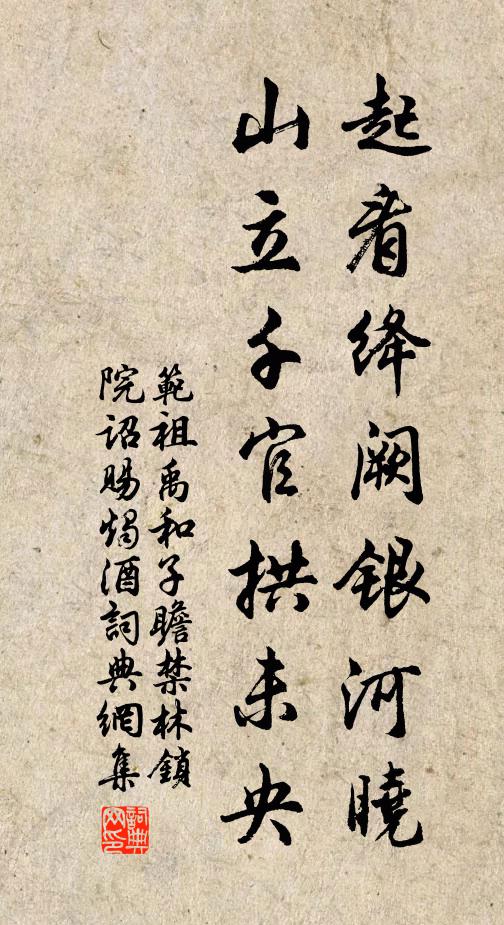 起看绛阙银河曉
山立千官拱未央
範祖禹和子瞻禁林鎖
院詔賜燭酒詞典網集
詞典
网印